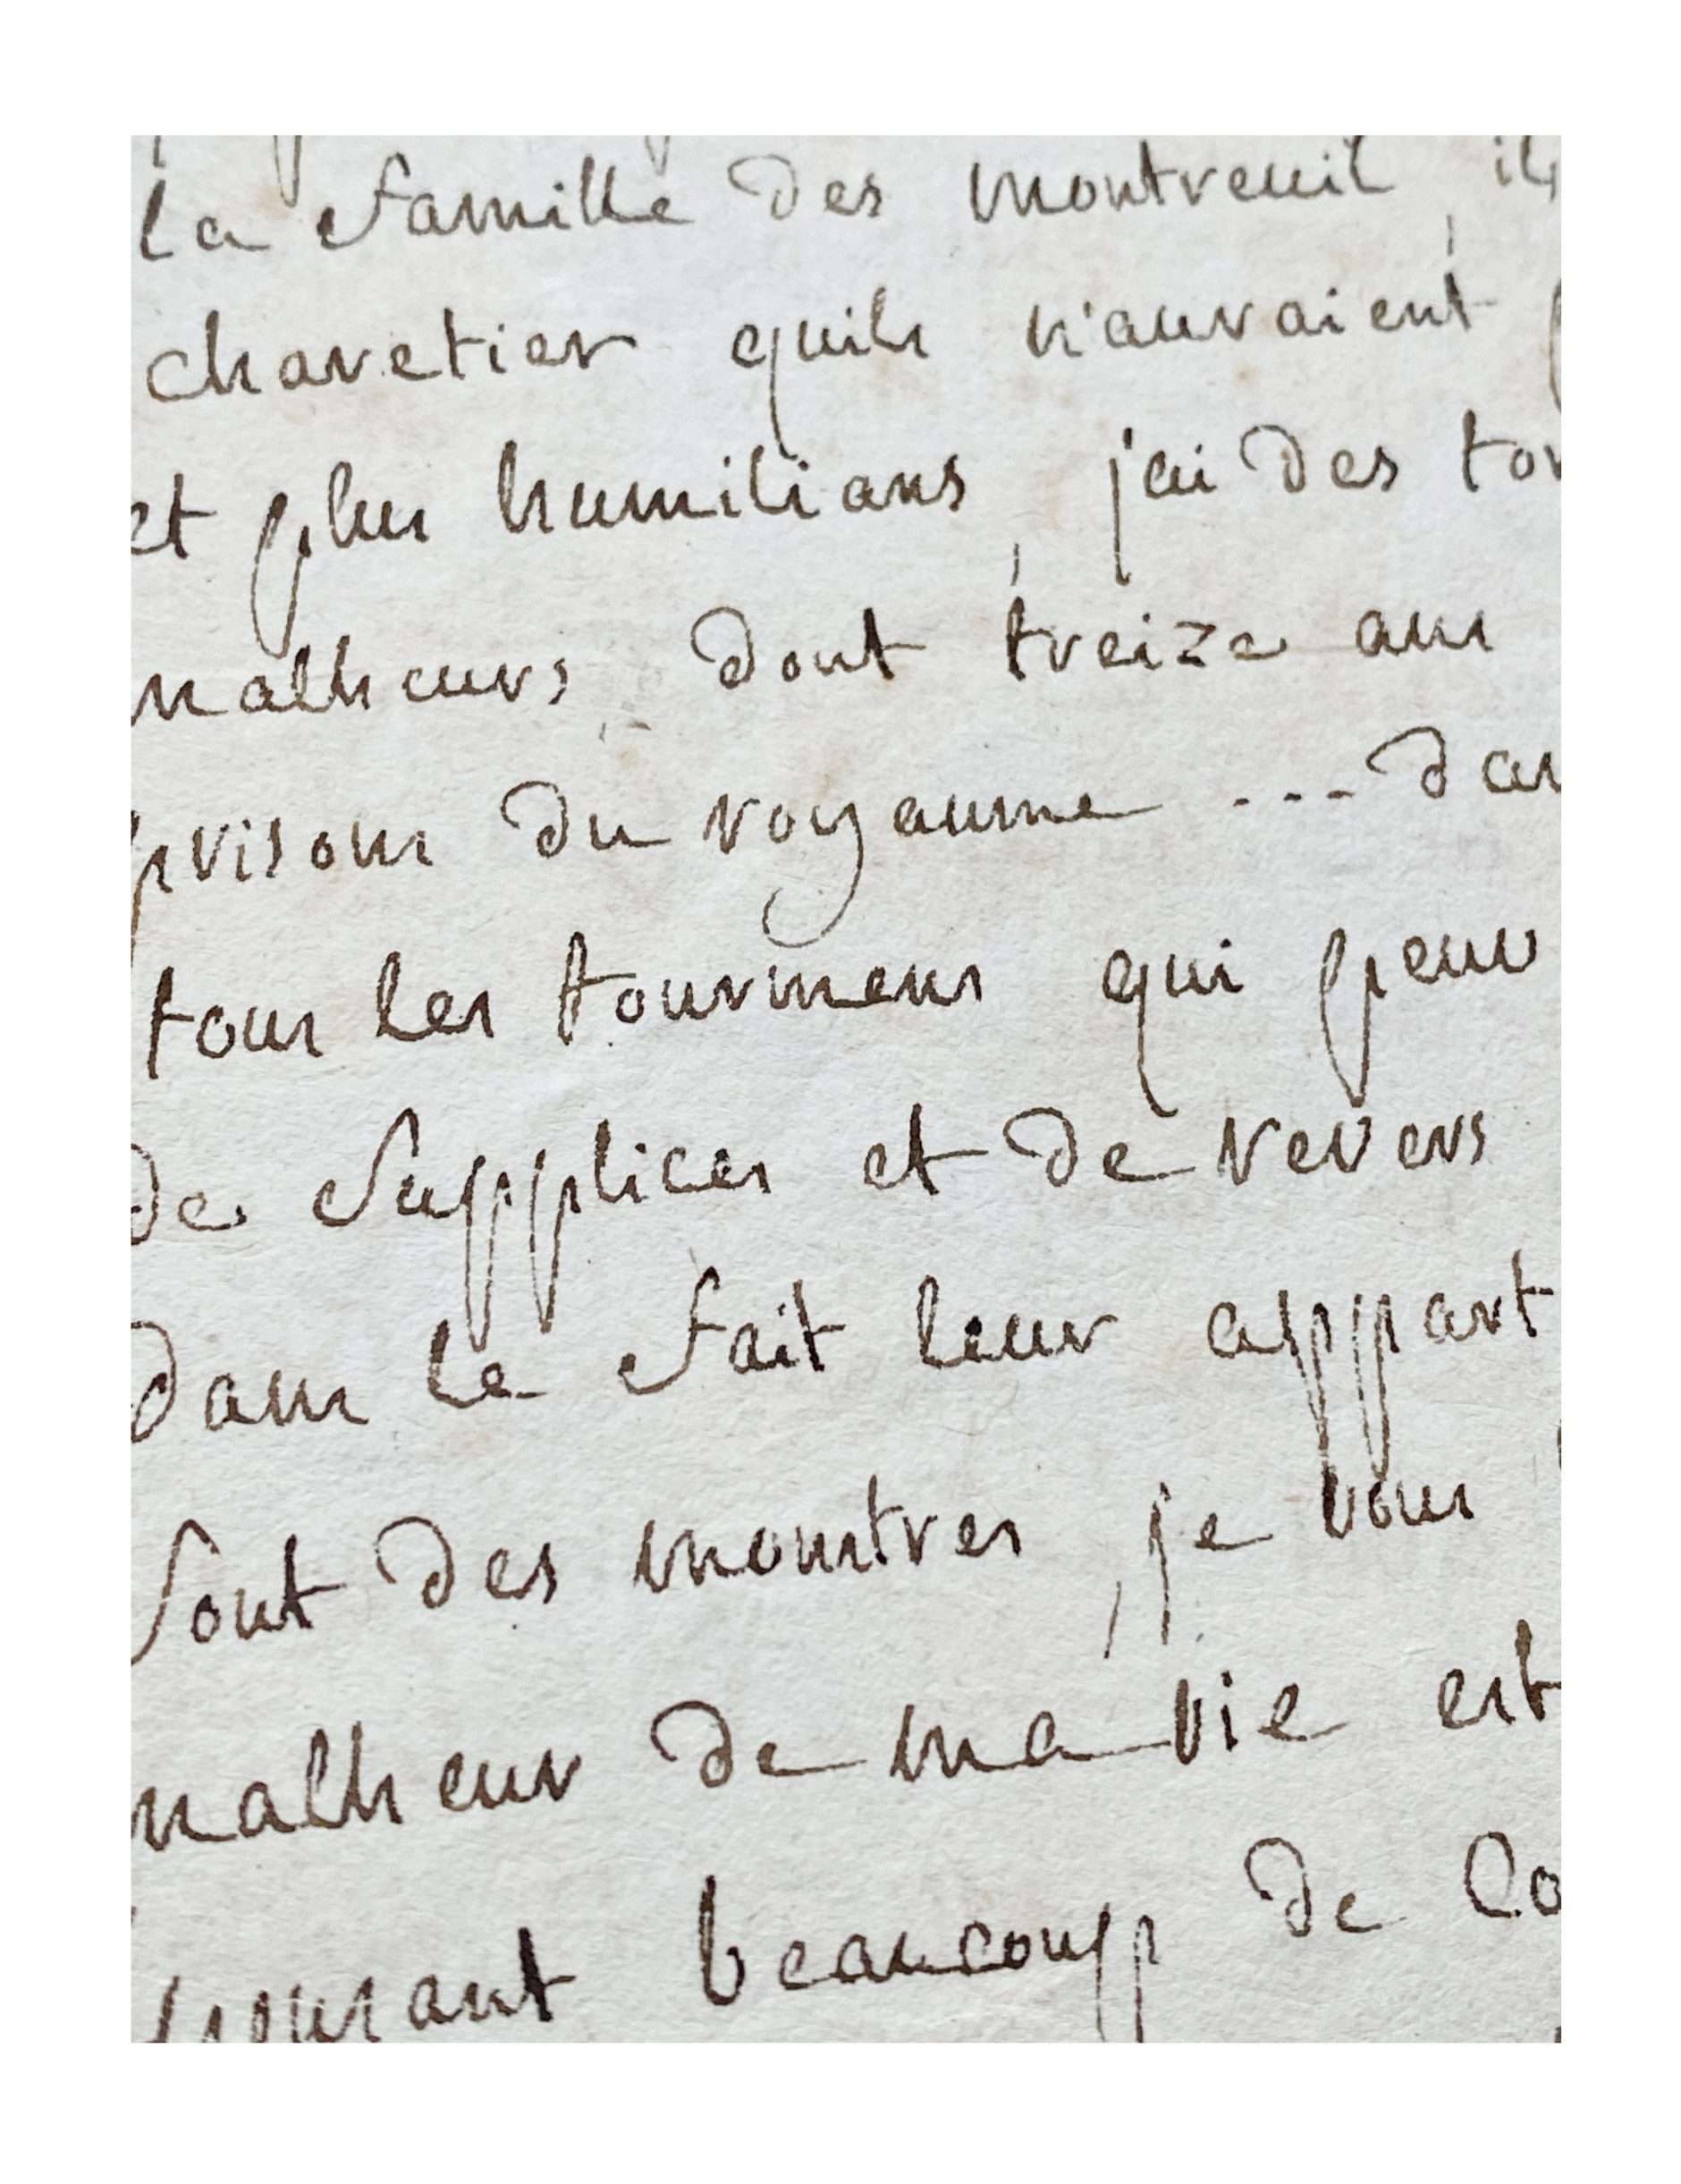 la famille des montreuil, ils
charetier quils n'auraient
et plus humilians, j'ai des tor
malheurs, dont treize ans
prisons du royaume ... dan
tous les tourmens qui peuv
de supplices et de revers
dans le fait leur appart
sont des monstres, je vous
malheur de ma vie est
beaucoup de Co